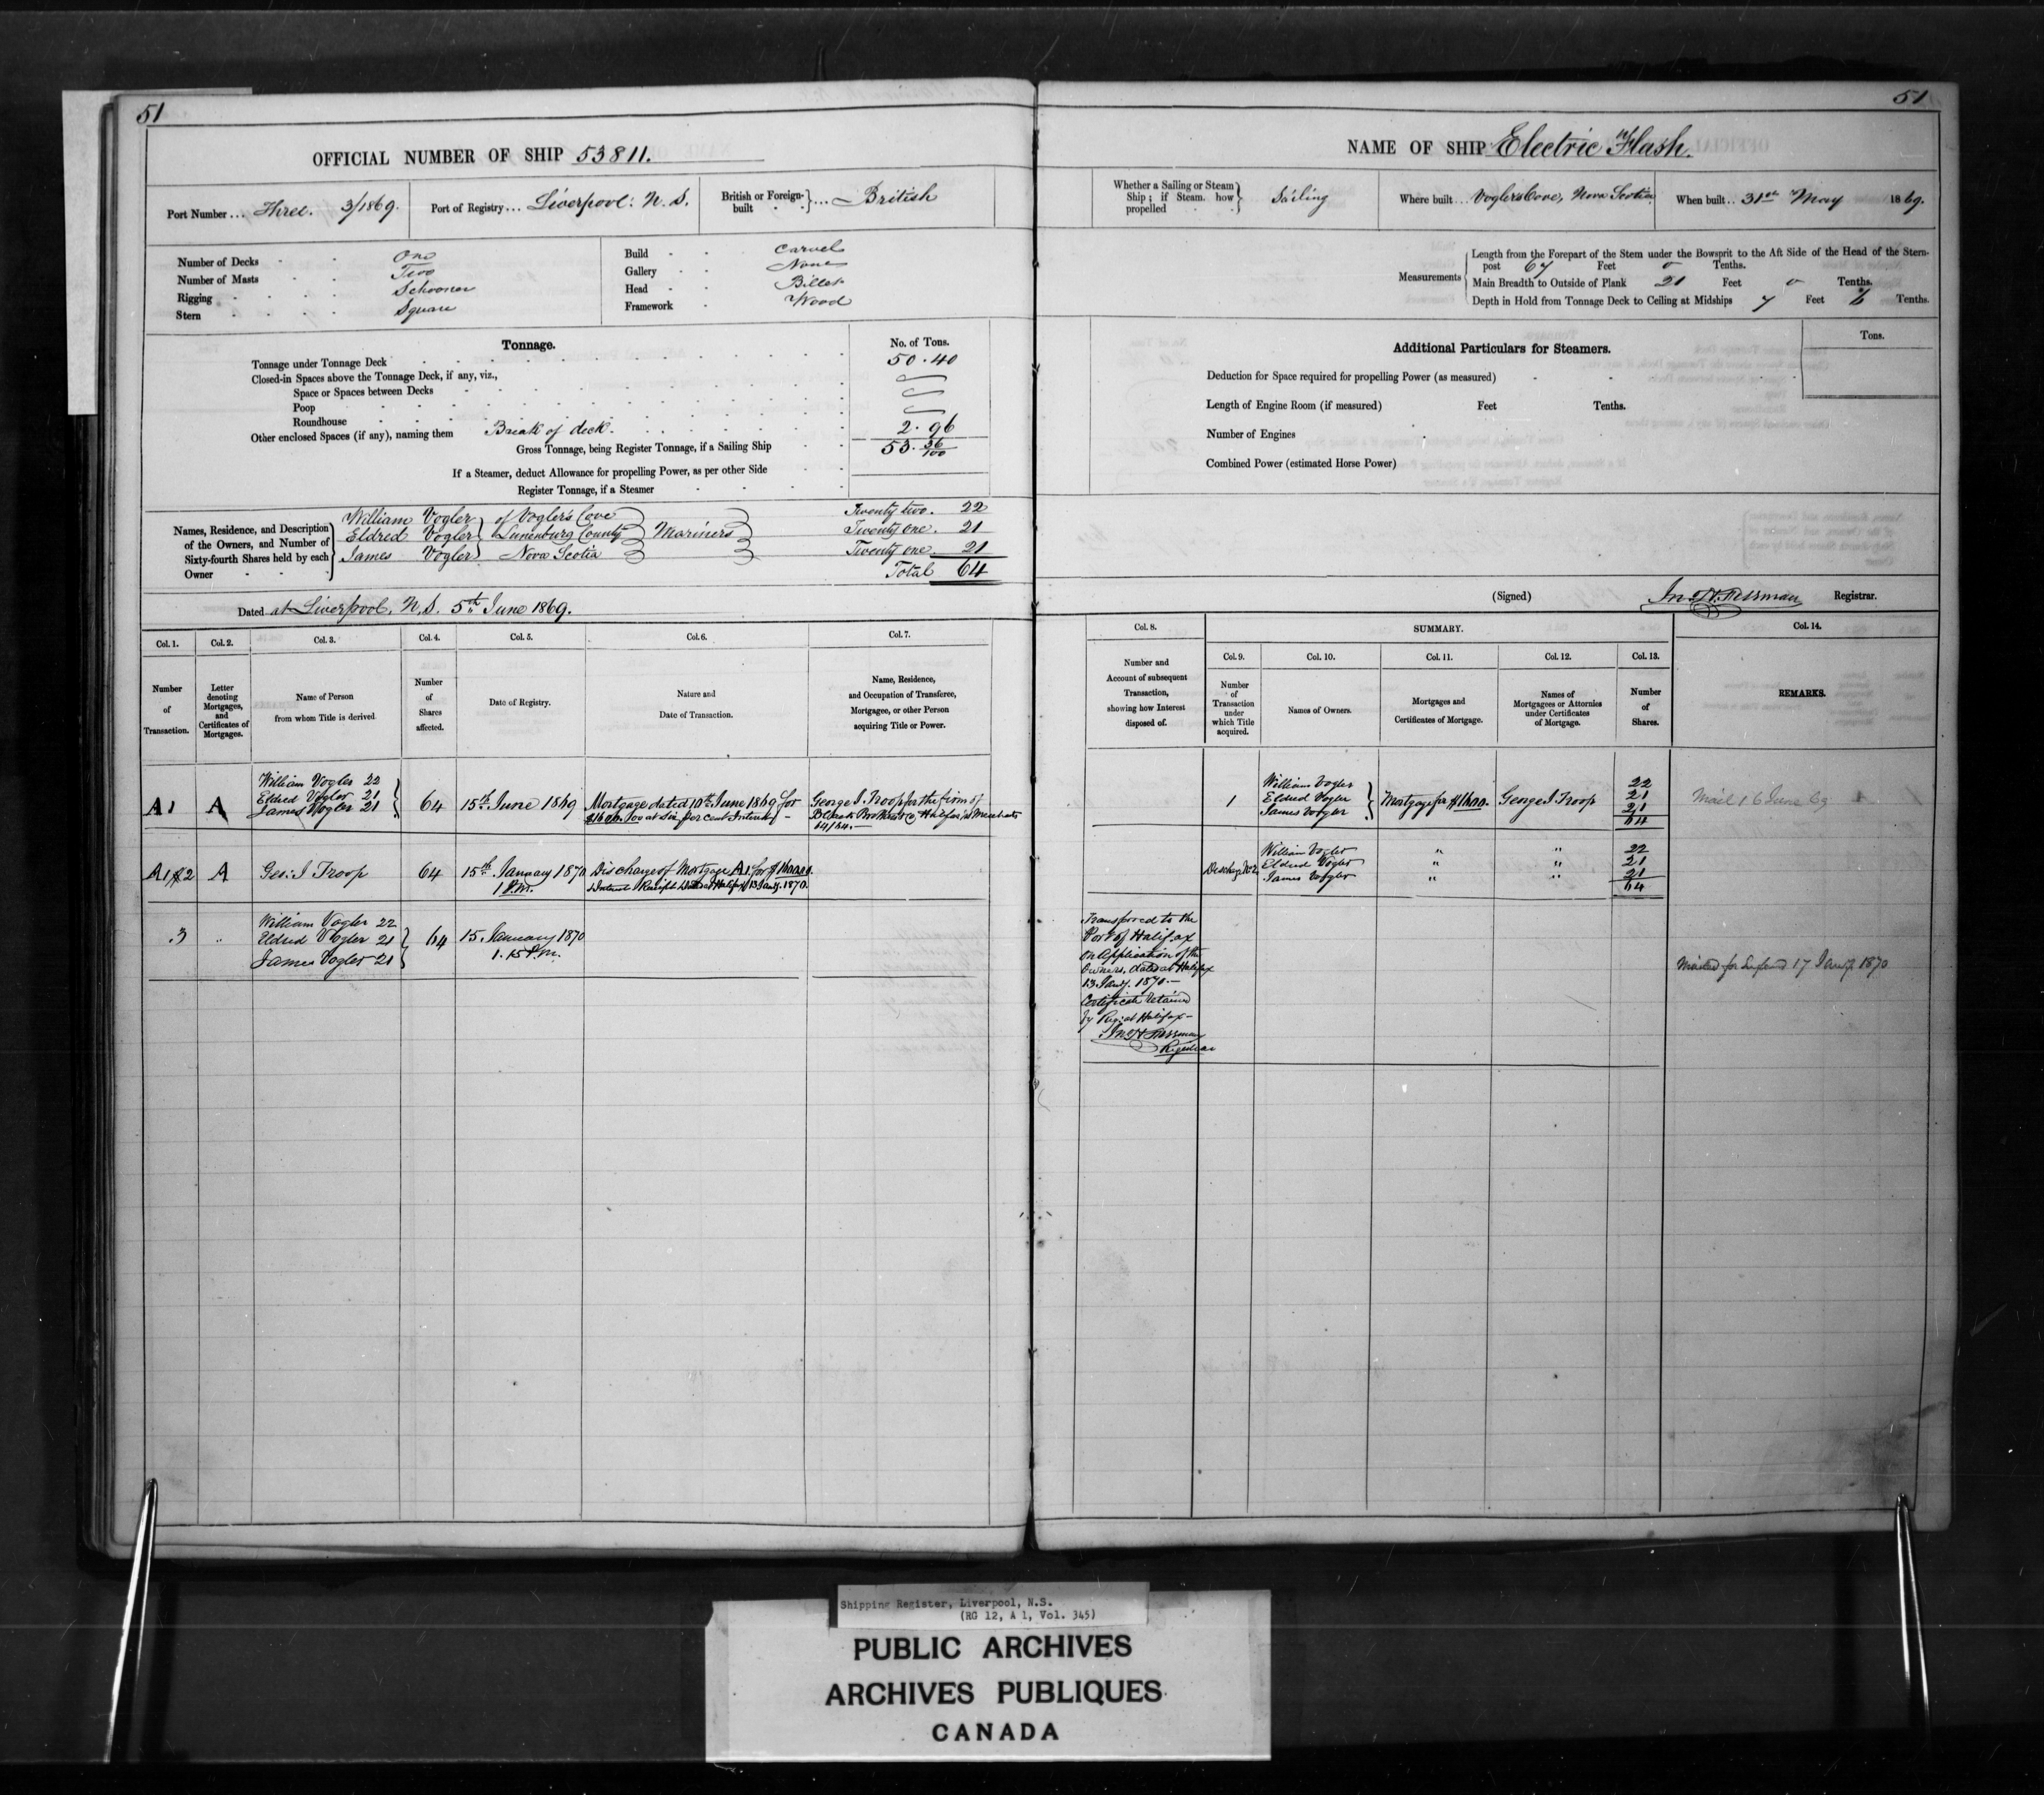 51
OFFICIAL NUMBER OF SHIP 53811.
Port Number ... Three. 3/1869.
Port of Registry ... Liverpool. N.S.
British or Foreign-built ... British
Number of Decks One
Number of Masts Two
Rigging Schooner
Stern Square
Build Carvel
Gallery None
Head Billet
Framework Wood
Tonnage.
No. of Tons.
Tonnage under Tonnage Deck 50.40
Closed-in Spaces above the Tonnage Deck, if any, viz.,
Space or Spaces between Decks
Poop
Roundhouse
Other enclosed Spaces (if any), naming them Break of deck. 2.96
Gross Tonnage, being Register Tonnage, if a Sailing Ship 53.36/100
If a Steamer, deduct Allowance for propelling Power, as per other Side
Register Tonnage, if a Steamer
Names, Residence, and Description of the Owners, and Number of Sixty-fourth Shares held by each Owner
William Vogler of Vogler's Cove Twenty two. 22
Eldred Vogler Lunenburg County Mariners Twenty one. 21
James Vogler Nova Scotia Twenty one 21
Total 64
Dated at Liverpool, N.S. 5th June 1869.
Col. 1.
Number of Transaction.
Col. 2.
Letter denoting Mortgages, and Certificates of Mortgages.
Col. 3.
Name of Person from whom Title is derived
Col. 4.
Number of Shares affected.
Col. 5.
Date of Registry.
Col. 6.
Nature and Date of Transaction.
Col. 7.
Name, Residence, and Occupation of Transferee, Mortgagee, or other Person acquiring Title or Power.
A1 A
William Vogler 22
Eldred Vogler 21
James Vogler 21
64 15th June 1869
Mortgage dated 10th June 1869 for
$1600.00 at Six per cent Interest
George I Troop for the firm of
Brothers & Co Halifax, Merchants
64/64.
A1 & 2 A Geo: I Troop 64 15th January 1870
1 P.M.
Discharge of Mortgage A1 for $1600.00
& Interest Receipt dated at Halifax 13 Jany. 1870.
3
William Vogler 22
Eldred Vogler 21
James Vogler 21
64 15 January 1870
1.15 P.M.
51
NAME OF SHIP "Electric Flash.
Whether a Sailing or Steam Ship; if Steam, how propelled Sailing
Where built ... Voglers Cove, Nova Scotia
When built .. 31st May 1869.
Measurements
Length from the Forepart of the Stem under the Bowsprit to the Aft Side of the Head of the Stern-
post 67 Feet 0 Tenths.
Main Breadth to Outside of Plank 21 Feet 0 Tenths.
Depth in Hold from Tonnage Deck to Ceiling at Midships 7 Feet 6 Tenths.
Additional Particulars for Steamers.
Tons.
Deduction for Space required for propelling Power (as measured)
Length of Engine Room (if measured) Feet Tenths.
Number of Engines
Combined Power (estimated Horse Power)
(Signed) Registrar.
Col. 8.
Number and Account of subsequent Transaction, showing how Interest disposed of.
SUMMARY.
Col. 9.
Number of Transaction under which Title acquired.
Col. 10.
Names of Owners.
Col. 11.
Mortgages and Certificates of Mortgage.
Col. 12.
Names of Mortgagees or Attornies under Certificates of Mortgage.
Col. 13.
Number of Shares.
Col. 14.
REMARKS.
1
William Vogler 22
Eldred Vogler 21
James Vogler 21
64
Mortgage for $1600. George I Troop
Mail 16 June 69
Discharge No 2
William Vogler " " 22
Eldred Vogler " " 21
James Vogler " " 21
64
Transferred to the
Port of Halifax
on Application of the
Owners, dated at Halifax
13 Jany. 1870.—
Certificate retained
by Reg. at Halifax—
Registrar
Mailed for England 17 Jany. 1870
Shipping Register, Liverpool, N.S.
(RG 12, A 1, Vol. 345)
PUBLIC ARCHIVES
ARCHIVES PUBLIQUES
CANADA